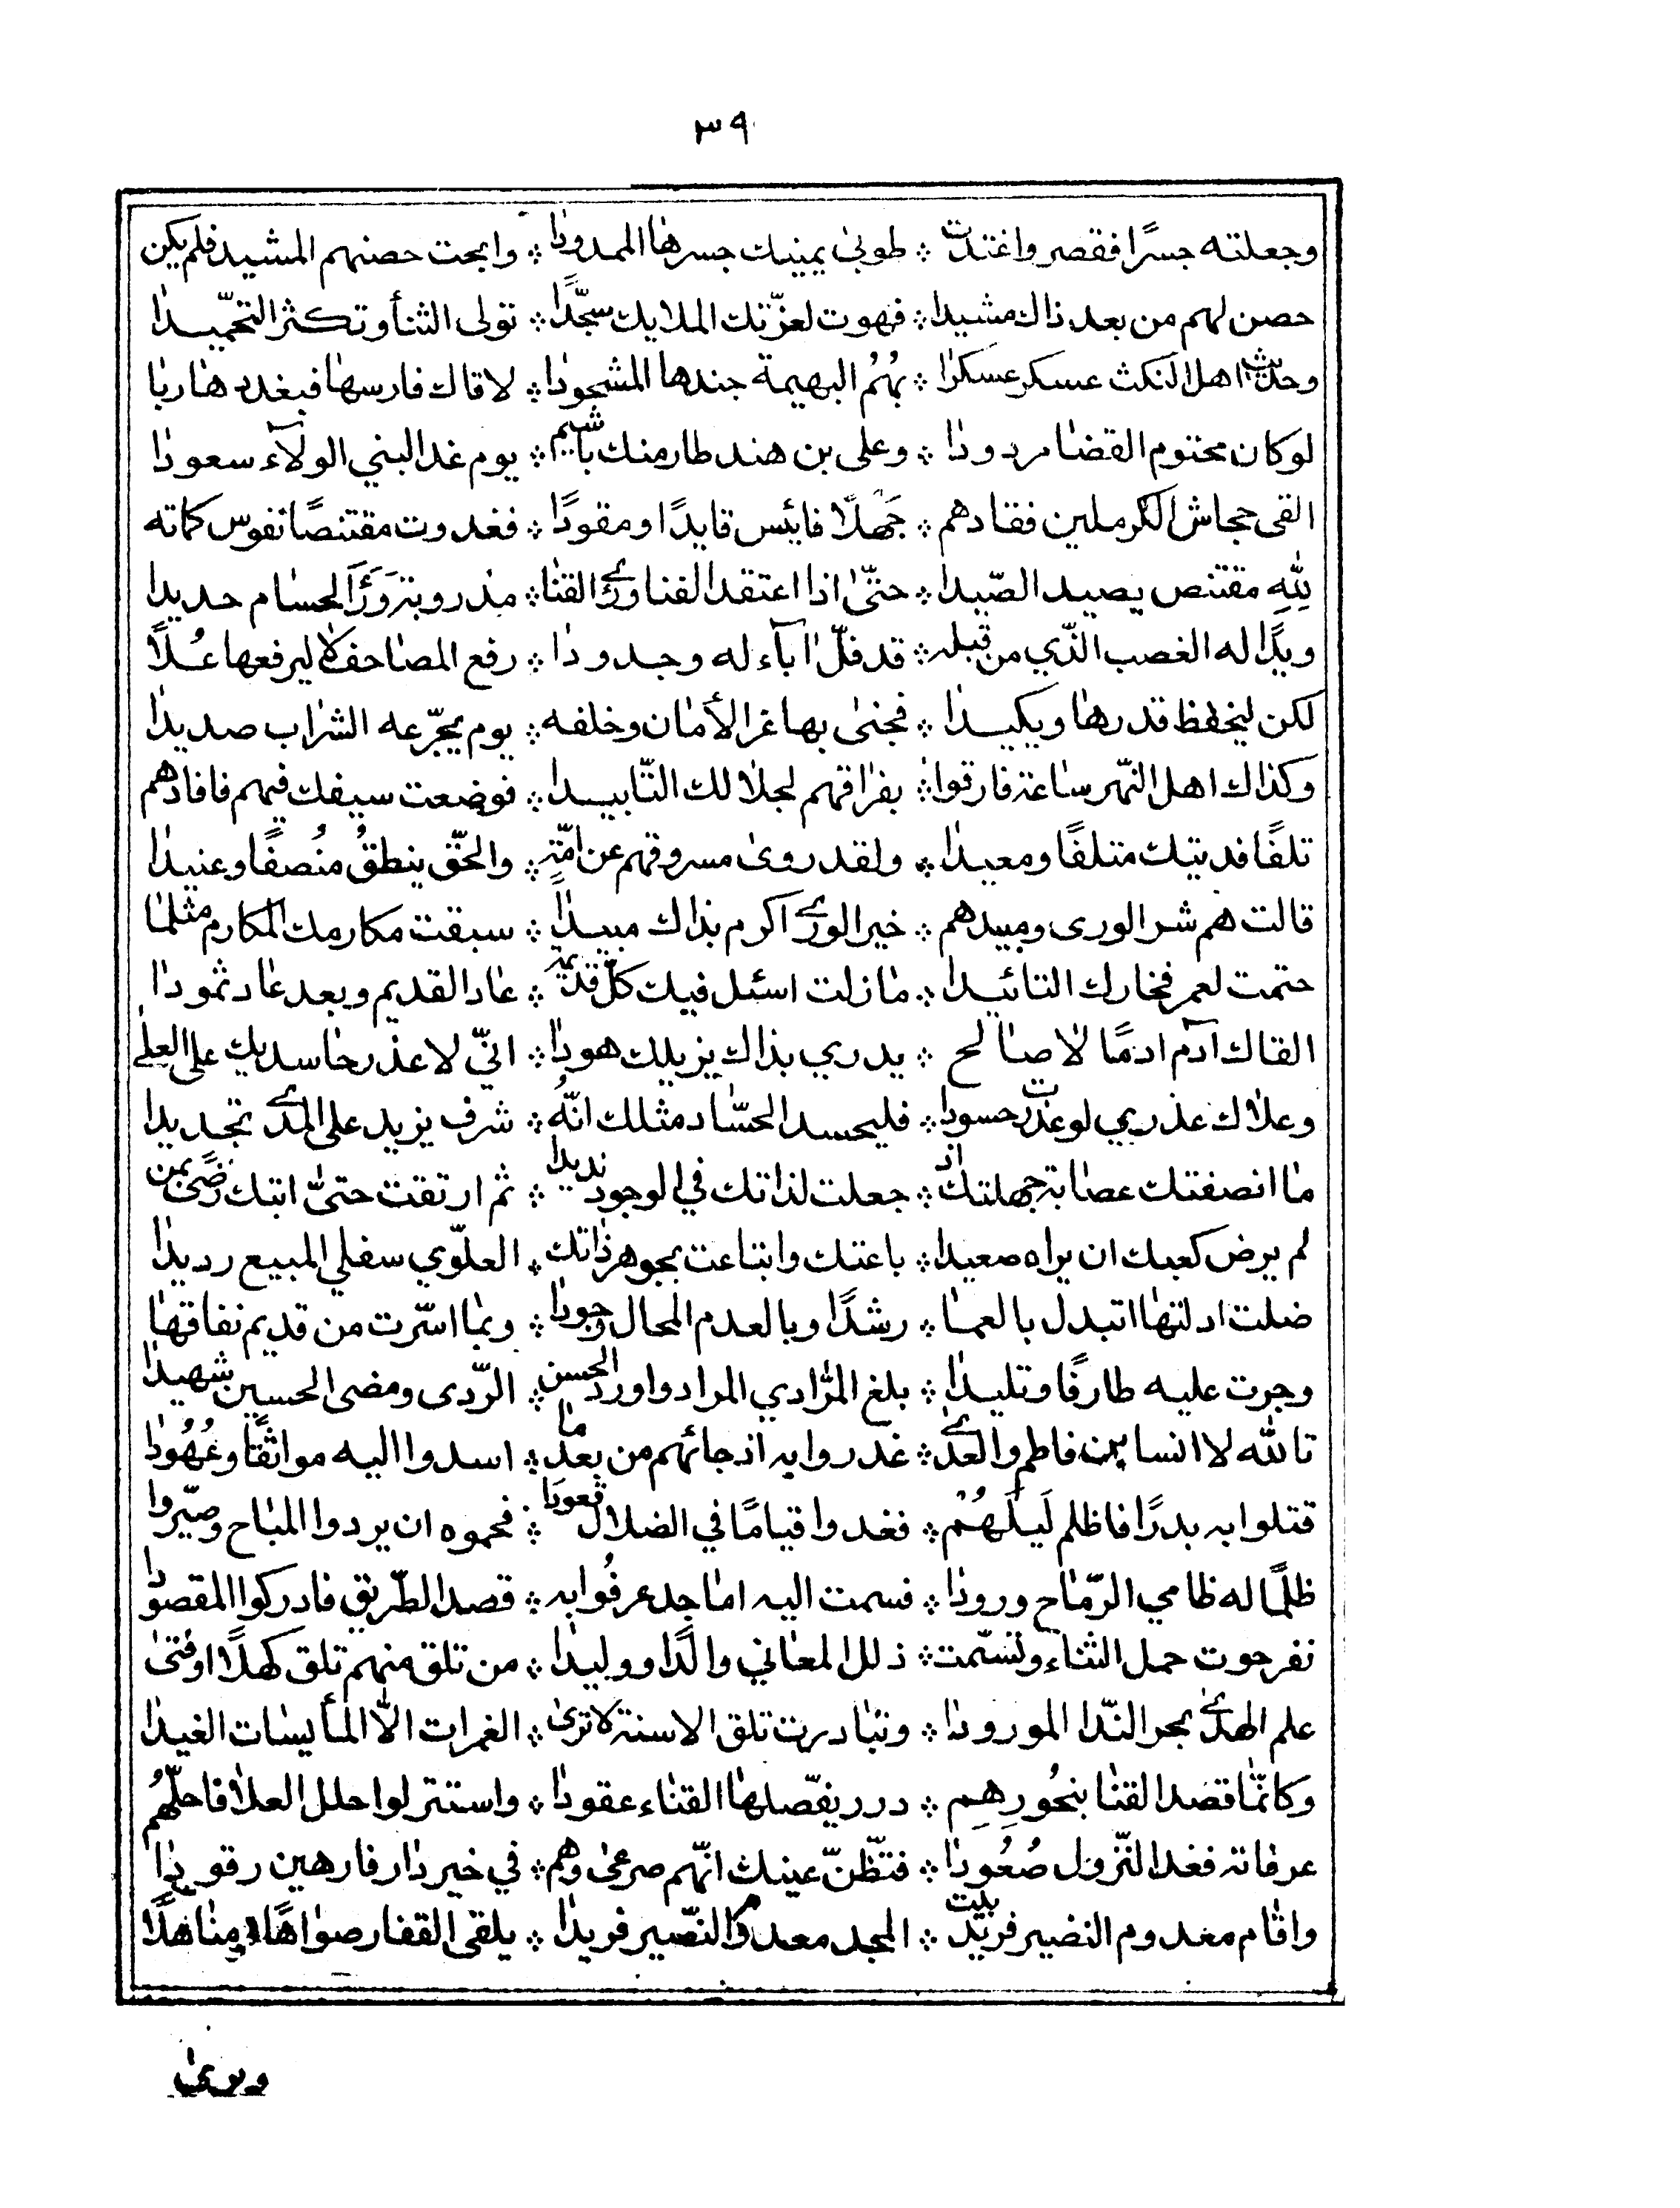 ٣٩
وجعلته جسرًا فقصر واغتدت ⁘ طوبىٰ يمينك جسرها الممدودا ⁘ وابحت حصنهم المشيد فلم يكن
حصن لهم من بعد ذاك مشيدا ⁘ فهوت لعزّتك الملايك سجّدًا ⁘ تولى الثنأ وتكثر التحميدا
وحدت اهل النكث عسكر عسكرا ⁘ بُهُم البهيمة جندها المشجودا ⁘ لاقاك فارسها فبغدد هاربا
لو كان محتوم القضا مردودا ⁘ وعلى بن هند طار منك باشيم ⁘ يوم غدا لبني الولآء سعودا
القى جحاش الكرملين فقادهم ⁘ جَهلًا فابئس قايدًا ومقودًا ⁘ فغدوت مقتنصًا نفوس كماته
لِلّٰهِ مقتنص يصيد الصّيدا ⁘ حتّىٰ اذا اعتقد الفنا ورئ القنا ⁘ مذروبتر الحسام حديدا
وبدًا له الغصب الذّي من قبله ⁘ قد فلّ اٰبآء له وجدودا ⁘ رفع المصاحف لا ليرفعها عُلاً
لكن ليخفظ قدرها ويكيدا ⁘ فجنىٰ بها غرا لأمان وخلفه ⁘ يوم يجرّعه الشراب صديدا
وكذاك اهل النّهر ساعة فارقوا ⁘ بفراقهم لجلالك التّابيدا ⁘ فوضعت سيفك فيهم فافادهم
تلفًا فديتك متلفًا ومعيدا ⁘ ولقد روىٰ مسروقهم عن امّةٍ ⁘ والحقّ ينطقُ مُنصفًا وعنيدا
قالت هم شر الورى ومبيدهم ⁘ خير الورىٰ اكرم بذاك مبيدًا ⁘ سبقت مكارمك المكارم مثلما
حتمت لعمر فخارك التائيدا ⁘ ما زلت اسئل فيك كلّ قديمة ⁘ عاد القديم وبعد عاد ثمودا
القاك آدم ادمًا لا صالح ⁘ يدري بذاك يزيلك هودا ⁘ انيّ لاعذر حاسديك على العلىٰ
وعلاك عذري لو عذرت حسودا ⁘ فليحسد الحسّاد مثلك انّهُ ⁘ شرف يزيد على المدىٰ تجديدا
ما انصفتك عصابة جهلتك اذ ⁘ جعلت لذاتك في الوجود نديدا ⁘ ثم ارتقت حتىّٰ ابتك رضىً بمن
لم يرض كعبك ان يراه صعيدا ⁘ باعتك وابتاعت بجوهر ذاتك ⁘ العلّوي سفلي المبيع رديدا
ضلت ادلتها اتبدل بالعما ⁘ رشدًا وبالعدم المحال وجودا ⁘ وبما اسّرت من قديم نفاقها
وجرت عليه طارفًا وتليدا ⁘ بلغ المرّادي المراد واورد الحسن ⁘ الرّدى ومضى الحسين شهيدا
تاللّٰه لا انسا ابن فاطم والعدىٰ ⁘ غدروا به اذ جائهم من بعد ما ⁘ اسدوا اليه مواثقًا وعُهُودا
قتلوا به بدرًا فاظلم لَيلَهُمُ ⁘ فغدوا قيامًا في الضلال قعودا ⁘ فحموه ان يردوا المباح وصيّروا
ظلمًا له ظامي الرّماح ورودا ⁘ فسمت اليه اماجد عرفُوا به ⁘ قصد الطّريق فادركوا المقصودا
نفر حوت حمل الثناء وتسّمت ⁘ ذلل المعاني والدًا ووليدا ⁘ من تلق منهم تلق كهلًا او فتىٰ
علم الهدىٰ بحر النّدا المورودا ⁘ وتبادرت تلق الاسنة لا ترىٰ ⁘ الغمرات الاّ المأيسات الغيدا
وكانّما قصد القنا بنحُورِهِم ⁘ درر يفصّلها القناء عقودا ⁘ واستنزلوا حلل العلا فاحلّهُم
عرفاته فغدا النّزول صُعُودا ⁘ فتظنّ عينك انّهم صرعىٰ وهم ⁘ في خير دار فارهين رقودا
واقام معدوم النضير فريد بيت ⁘ المجد معدوم النصّير فريدا ⁘ يلقى القفار صواهلًا ومناهلًا
ويرىٰ